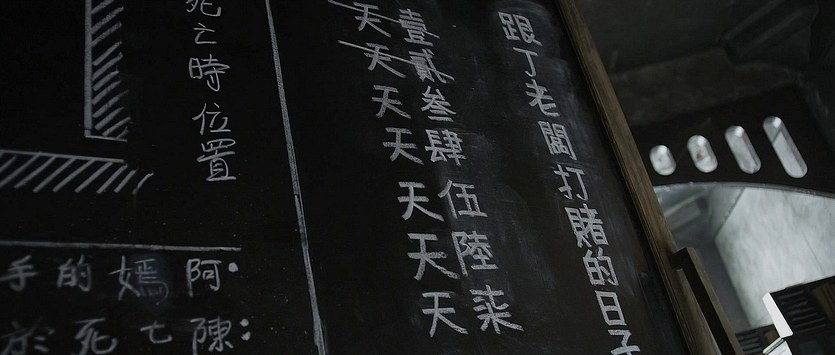 跟丁老闆打賭的日子
壹天
貳天
叁天
肆天
伍天
陸天
柒天
死亡時位置
•阿嫣的手
:陳七死於